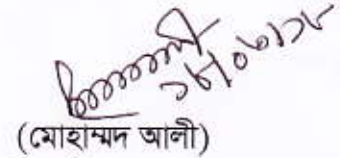 ১৮/০৬/১৮
(মোহাম্মদ আলী)